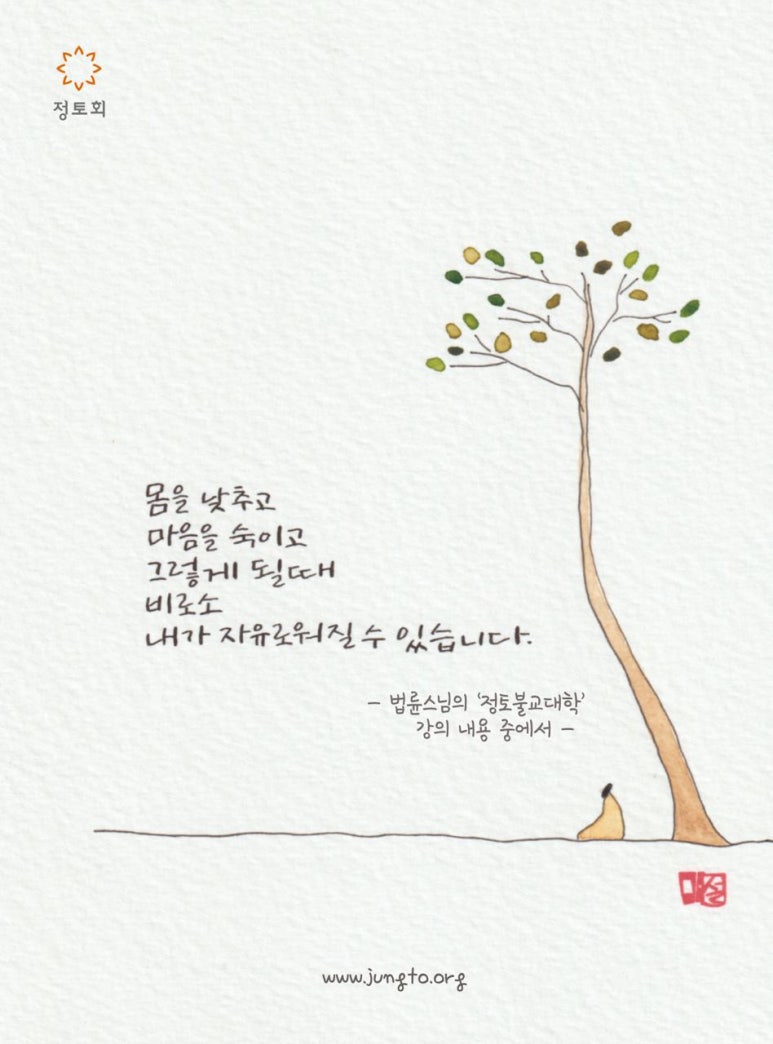 정토회
몸을 낮추고
마음을 숙이고
그렇게 될때
비로소
내가 자유로워질 수 있습니다.
– 법륜스님의 '정토불교대학'
강의 내용 중에서 –
www.jungto.org